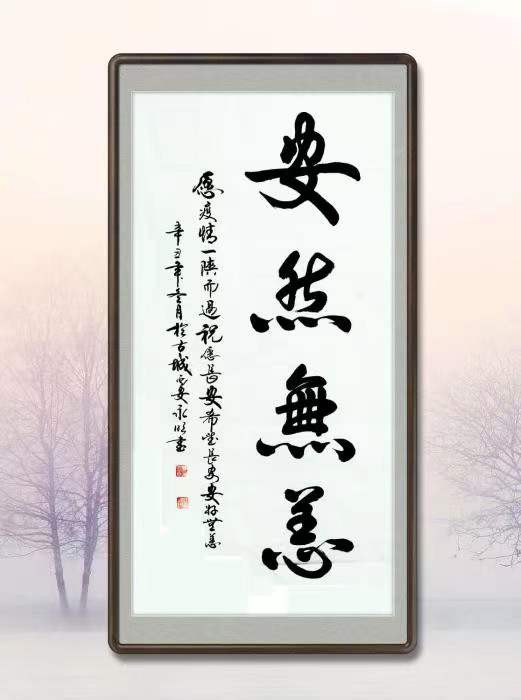 安然無恙
愿疫情一陕而過祝愿长安希望长安安好無恙
辛丑年冬月於古城西安永書